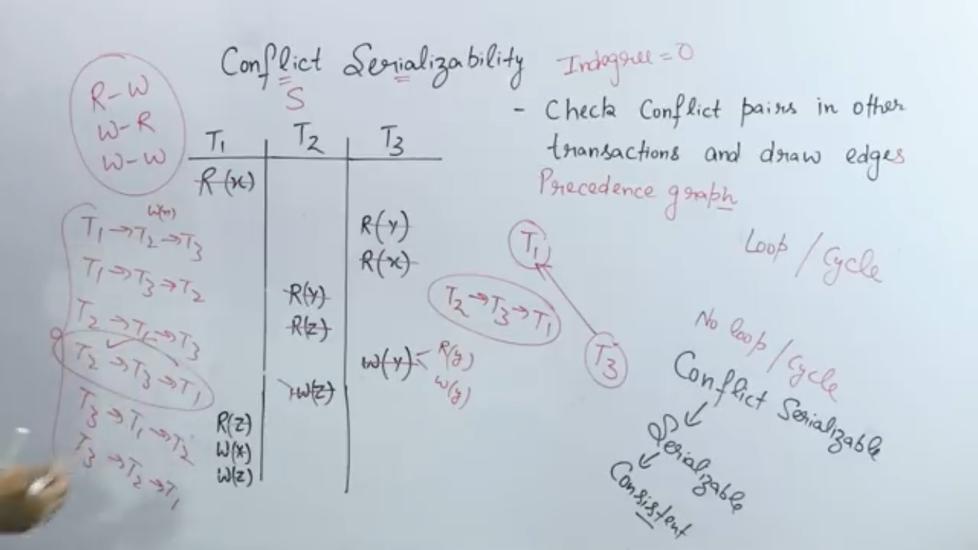 Conflict Serializability
S
Indegree = 0
R-W
W-R
W-W
- Check Conflict pairs in other
transactions and draw edges
Precedence graph
T1 T2 T3
R(x)
R(y)
R(x)
R(y)
R(z)
W(y) R(y)
W(y)
W(z)
R(z)
W(x)
W(z)
W(x)
T1 → T2 → T3
T1 → T3 → T2
T2 → T1 → T3
T2 → T3 → T1
T3 → T1 → T2
T3 → T2 → T1
T1
T2 → T3 → T1
T3
Loop / Cycle
No loop / Cycle
Conflict Serializable
Serializable
Consistent